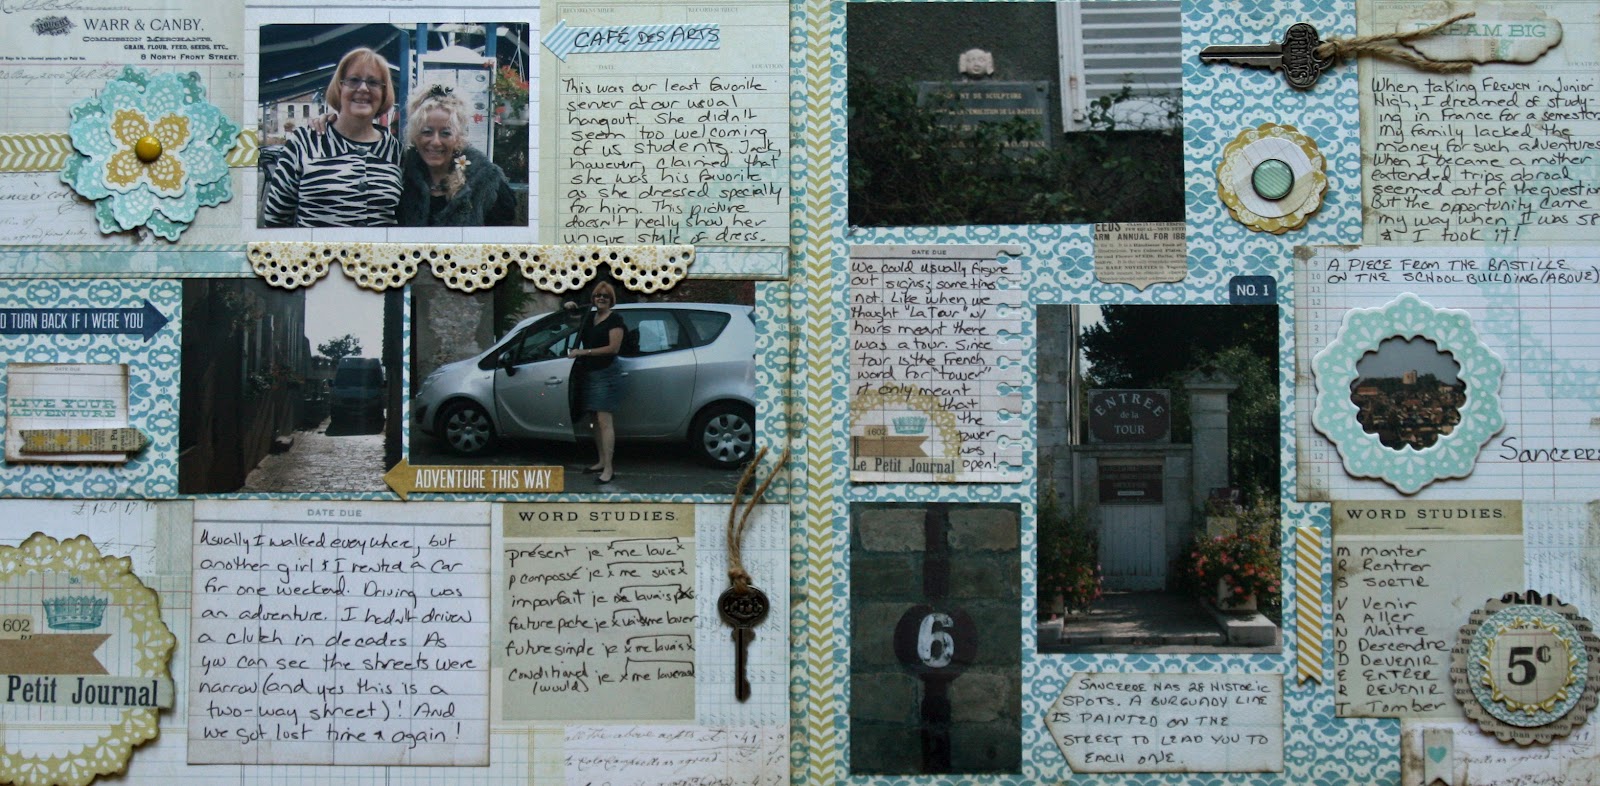 WARR & CANBY,
COMMISSION MERCHANTS,
GRAIN, FLOUR, FEED, SEEDS, ETC.,
8 NORTH FRONT STREET.
CAFÉ DES ARTS
This was our least favorite
server at our usual
hangout. She didn't
seem too welcoming
of us students. Jack,
however, claimed that
she was his favorite
as she dressed specially
for him. This picture
doesn't really show her
unique style of dress.
TURN BACK IF I WERE YOU
DATE DUE
LIVE YOUR
ADVENTURE
ADVENTURE THIS WAY
1602
Petit Journal
DATE DUE
Usually I walked everywhere, but
another girl & I rented a car
for one weekend. Driving was
an adventure. I hadn't driven
a clutch in decades As
you can see the streets were
narrow (and yes this is a
two-way street)! And
we got lost time & again!
WORD STUDIES.
présent je me lave
p composé je me suis
imparfait je
future proche je
future simple je
conditional je
(would)
DREAM BIG
DREAMS
When taking French in Junior
High, I dreamed of study-
ing in France for a semester.
My family lacked the
money for such adventures
When I became a mother
extended trips abroad
seemed out of the question
But the opportunity came
my way when I was 58
& I took it!
DE SCULPTURE
DE LA BASTILLE
ARM ANNUAL FOR 188
DATE DUE
We could usually figure
out signs; sometimes
not. Like when we
thought "La Tour" w/
hours meant there
was a tour. Since
tour is the French
word for "tower"
it only meant
that
the
tower
was
open!
1602
Le Petit Journal
NO. 1
ENTREE
de la
TOUR
A PIECE FROM THE BASTILLE
ON THE SCHOOL BUILDING (ABOVE)
Sancerre
6
SANCERRE HAS 28 HISTORIC
SPOTS. A BURGUNDY LINE
IS PAINTED ON THE
STREET TO LEAD YOU TO
EACH ONE.
WORD STUDIES.
M Monter
R Rentrer
S SORTIR
V Venir
A Aller
N Naître
D Descendre
D DEVENIR
E ENTRER
R REVENIR
T Tomber
5¢